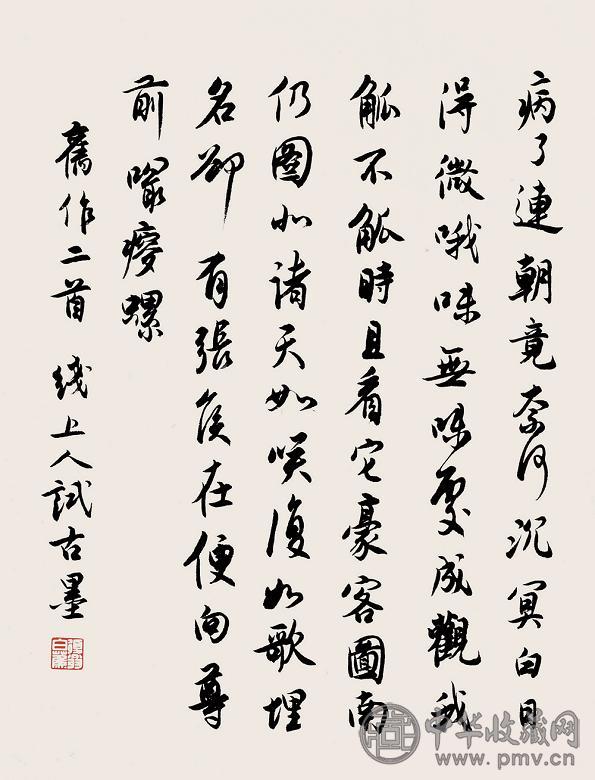 病了連朝竟奈何沉冥白日
得微哦味無味處成觀我
觚不觚時且看它豪客圖南
仍圖北諸天如笑復如歌埋
名卻有張侯在便向尊
前螺
舊作二首 綫上人試古墨
中华收藏网
www.pmv.cn